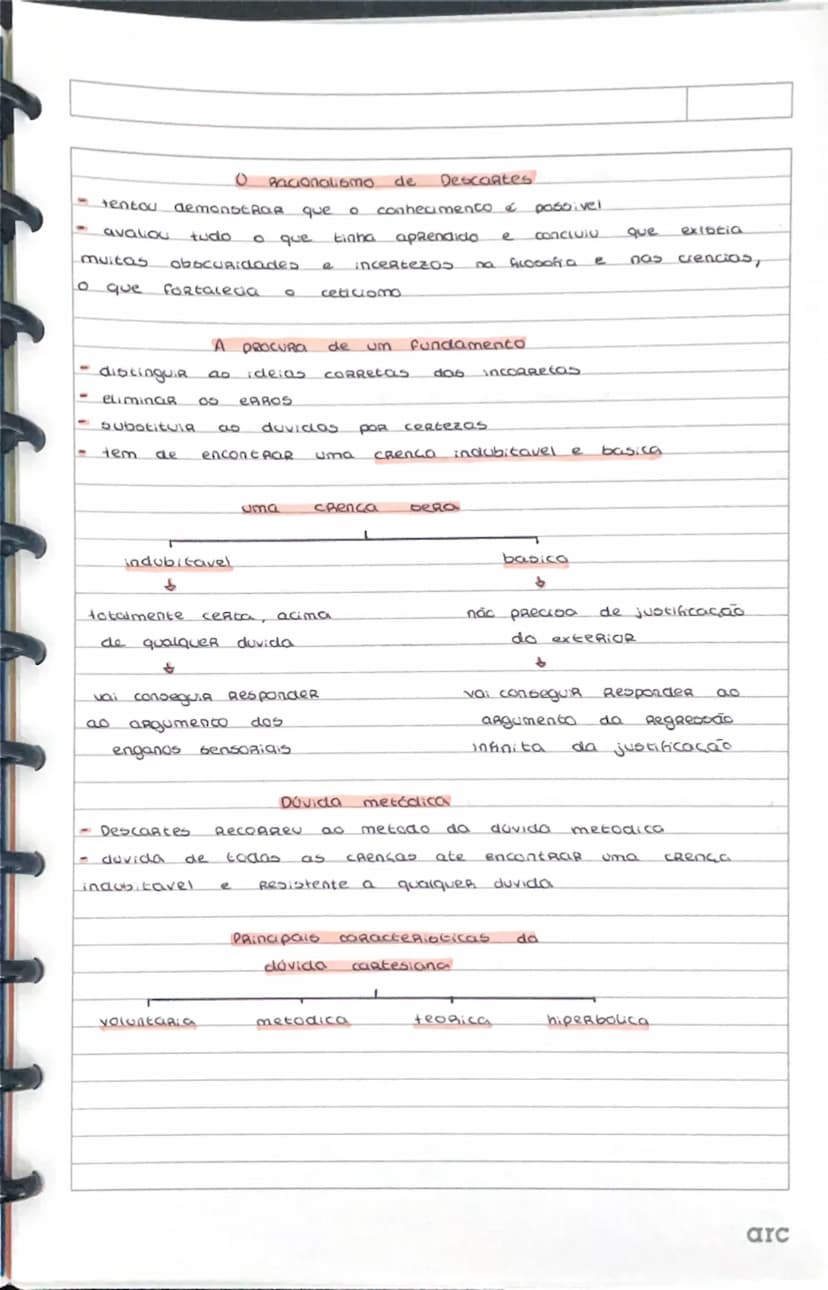 O racionalismo de Descartes
- tentou demonstrar que o conhecimento é possivel
- avaliou tudo o que tinha aprendido e concluiu que existia
muitas obscuridades e incertezas na filosofia e nas ciencias,
o que fortalecia o ceticismo
A procura de um fundamento
- distinguir as ideias corretas das incorretas
- eliminar os erros
- substituir as duvidas por certezas
- tem de encontrar uma crença indubitavel e basica
uma crença será
indubitavel basica
↓ ↓
totalmente certa, acima não precisa de justificação
de qualquer duvida do exterior
↓ ↓
vai conseguir responder vai conseguir responder ao
ao argumento dos argumento da regressão
enganos sensoriais infinita da justificação
Dúvida metódica
- Descartes recorreu ao metodo da dúvida metodica
- duvida de todas as crenças ate encontrar uma crença
indubitavel e resistente a qualquer duvida
Principais caracteristicas da
dúvida cartesiana
voluntaria metodica teorica hiperbolica
arc